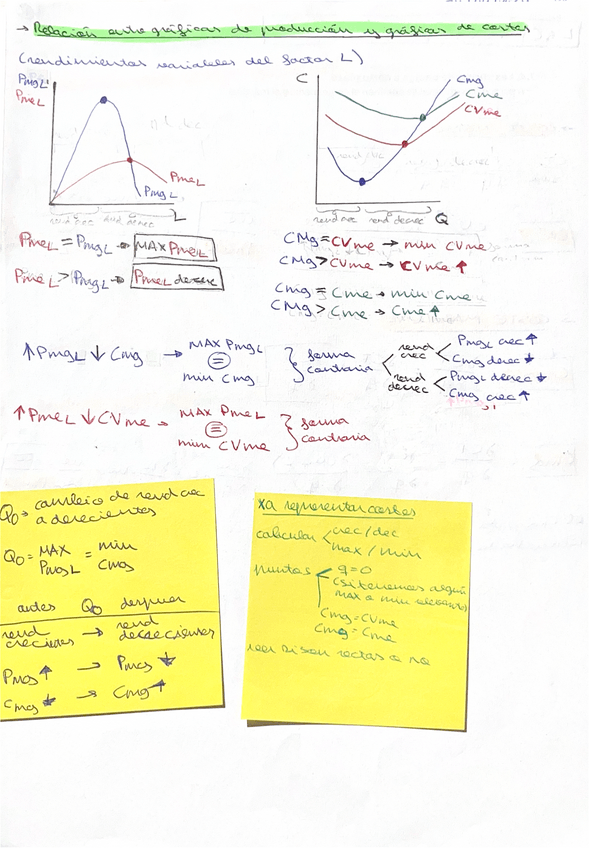 → Relación entre gráficas de producción y gráficas de costes
(rendimientos variables del factor L)
PmgL
PmeL
PmeL
PmgL
L
rend crec rend decrec
C
Cmg
Cme
CVme
rend crec rend decrec Q
PmeL = PmgL → MAX PmeL
PmeL > PmgL → PmeL decrec
CMg = CVme → min CVme
CMg > CVme → CVme ↑
Cmg = Cme → min Cme
CMg > Cme → Cme ↑
↑ PmgL ↓ Cmg → MAX PmgL = min Cmg } forma contraria
rend crec < PmgL crec ↑
Cmg decrec ↓
rend decrec < PmgL decrec ↓
Cmg crec ↑
↑ PmeL ↓ CVme → MAX PmeL = min CVme } forma contraria
Q0 → cambio de rend crec
a decrecientes
Q0 = MAX PmgL = min Cmg
antes Q0 despues
rend crecientes → rend decrecientes
Pmg ↑ → Pmg ↓
Cmg ↓ → Cmg ↑
xa representar costes
calcular < crec/dec
max / min
puntos < q=0
(si tenemos algún
max o min
Cmg = CVme
Cmg = Cme
rectas o no